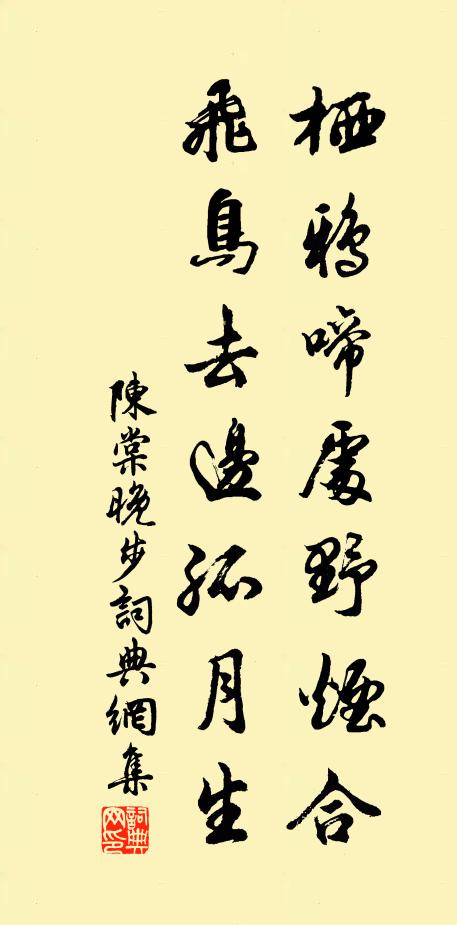 栖鴉啼處野煙合
飛鳥去邊孤月生
陳棠晚步詞典網集
詞典網印